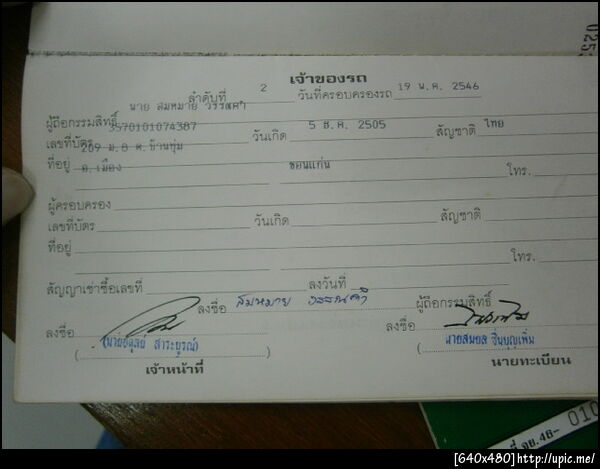 เจ้าของรถ
ลำดับที่ 2 วันที่ครอบครองรถ 19 พ.ค. 2546
ผู้ถือกรรมสิทธิ์ นาย สมหมาย วรรณคำ
เลขที่บัตร 3570101074387 วันเกิด 5 ธ.ค. 2505 สัญชาติ ไทย
ที่อยู่ 209 ม.8 ต.บ้านทุ่ม
อ.เมือง ขอนแก่น โทร.
ผู้ครอบครอง
เลขที่บัตร วันเกิด สัญชาติ
ที่อยู่
โทร.
สัญญาเช่าซื้อเลขที่ ลงวันที่
ลงชื่อ สมหมาย วรรณคำ ผู้ถือกรรมสิทธิ์
ลงชื่อ ลงชื่อ
(นายอดุลย์ สาระบูรณ์) (นายสมอล ชื่นบุญเพิ่ม
เจ้าหน้าที่ นายทะเบียน
[640x480]http://upic.me/